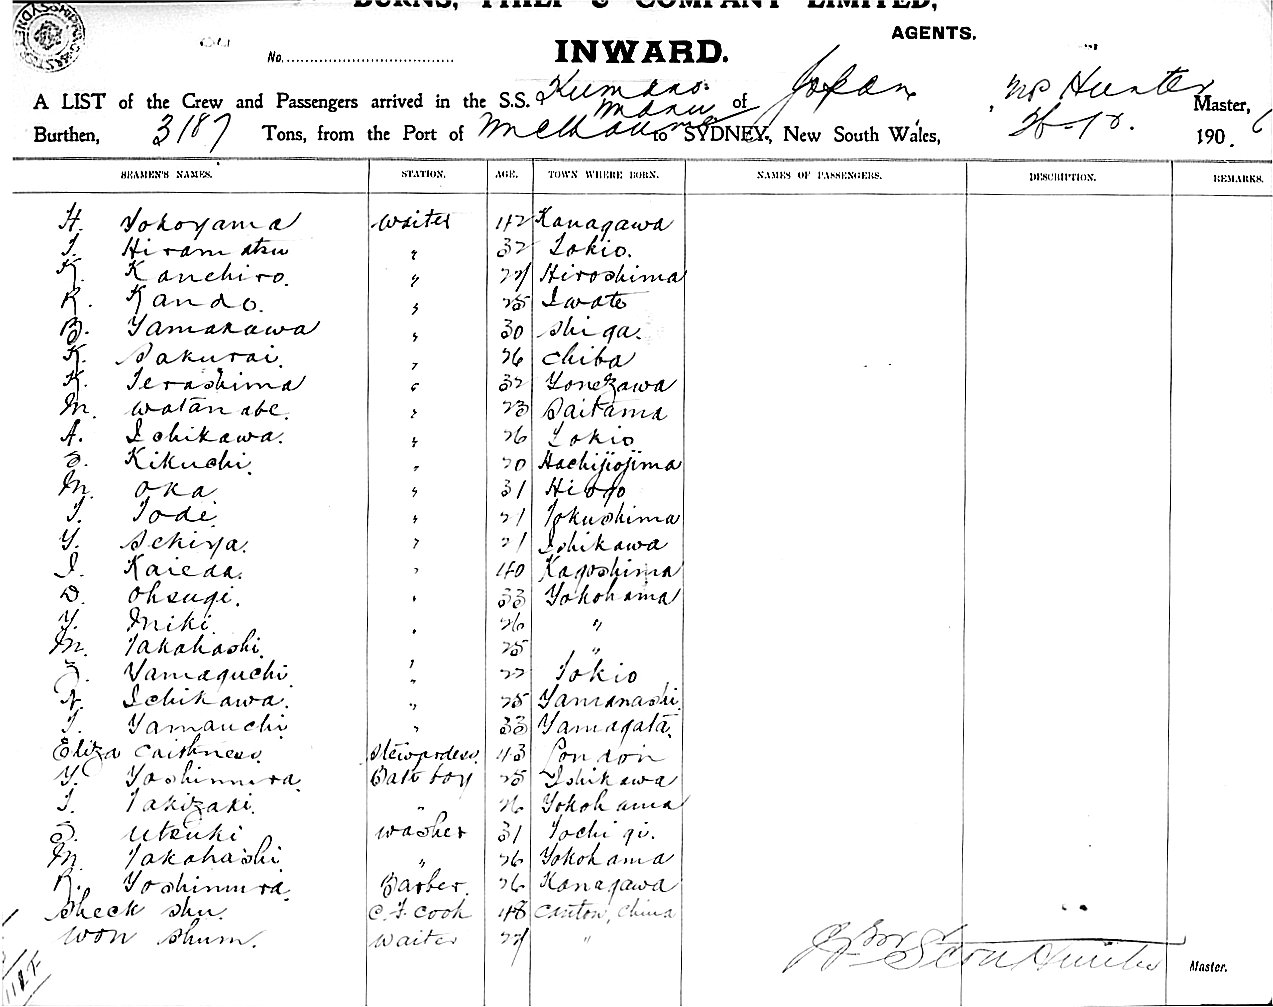 BURNS, PHILP & COMPANY LIMITED,
AGENTS.
No.
INWARD.
A LIST of the Crew and Passengers arrived in the S.S. Kumano Maru of Japan, Mr Hunter Master,
Burthen, 3187 Tons, from the Port of Melbourne to SYDNEY, New South Wales, 26-10. 1906
SEAMEN'S NAMES. STATION. AGE. TOWN WHERE BORN. NAMES OF PASSENGERS. DESCRIPTION. REMARKS.
H. Yokoyama waiter 42 Kanagawa
T. Hiramatsu " 32 Tokio.
K. Kanchiro. " 27 Hiroshima
R. Kando. " 25 Iwate
B. Yamakawa " 30 Shiga.
K. Sakurai. " 26 Chiba
K. Terashima " 32 Yonezawa
M. Watanabe. " 23 Saitama
A. Ichikawa. " 26 Tokio
S. Kikuchi. " 20 Hachijiojima
M. Oka " 31 Hiogo
T. Tode. " 21 Tokushima
Y. Sekiya. " 21 Ishikawa
I. Kaieda. " 40 Kagoshima
D. Ohsugi. " 33 Yokohama
Y. Miki. " 26 "
M. Takahashi. " 25 "
Yamaguchi. " 22 Tokio
Ichikawa. " 25 Yamanashi.
T. Yamauchi " 33 Yamagata.
Eliza Caithness. Stewardess. 43 London
Y. Yoshimura. Bath boy 25 Ishikawa
T. Takizaki. " 26 Yokohama
S. Utsuki washer 31 Tochigi.
M. Takahashi " 26 Yokohama
R. Yoshimura. Barber. 26 Kanagawa
Sheck Shu. C.F. Cook 48 Canton, China
Won Shum. Waiter 27 "
Hunter Master.